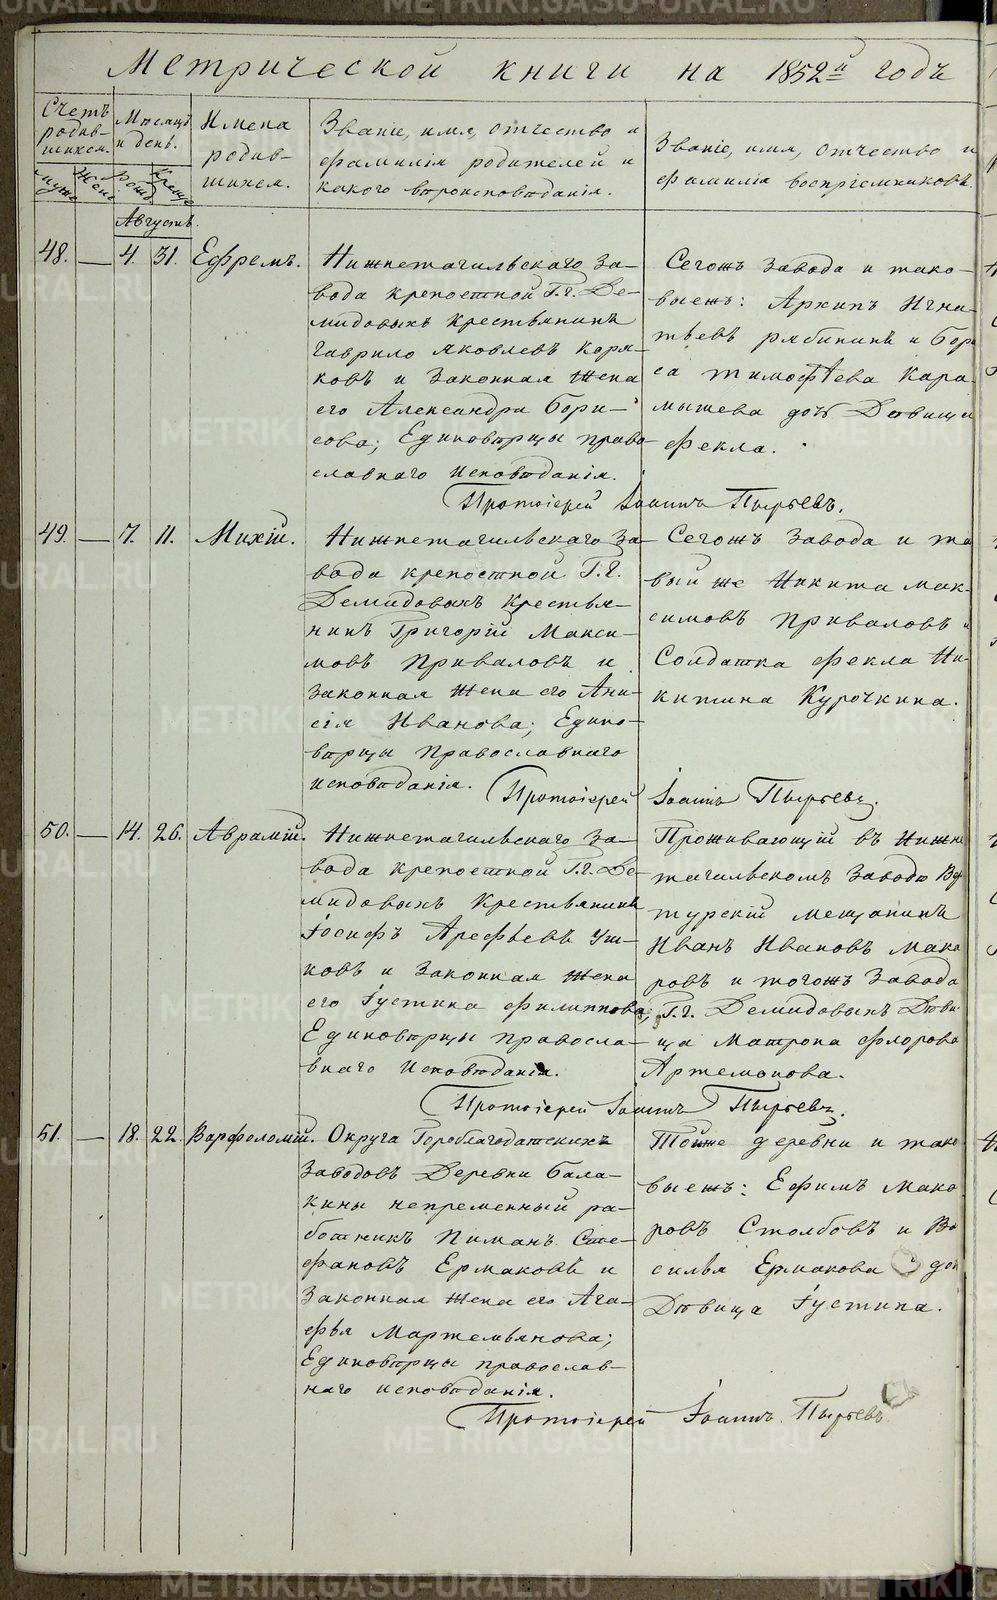 Метрической книги на 1852й годъ
Счетъ родив-
шихся.
мужс. Женс.
Месяцъ и день.
Рожд. Крещ.
Имена
родив-
шихся.
Званіе, имя, отчество и
фамилія родителей и
какого вѣроисповѣданія
Званіе, имя, отчество и
фамилія воспріемниковъ.
Августъ.
48. — 4. 31. Ефремъ.
Нижнетагильскаго За-
вода крепостной Г.г. Де-
мидовыхъ крестьянинъ
Гаврило Яковлевъ Коря-
ковъ и Законная Жена
его Александра Бори-
сова; Единовѣрцы право-
славнаго исповѣданія.
Сегожъ Завода и тако-
выежъ: Архипъ Игна-
тьевъ рябининъ и Бори
са тимофѣева Кара-
мышева дочь Дѣвица
Фекла.
Протоіерей Іоаннъ Пырьевъ.
49. — 7. 11. Михій.
Нижнетагильскаго За-
вода крепостной Г.г.
Демидовыхъ Крестья-
нинъ Григорій Макси-
мовъ Приваловъ и
Законная Жена его Ани-
сія Иванова; Едино-
вѣрцы Православнаго
исповѣданія.
Сегожъ Завода и та
выйже Никита Мак-
симовъ Приваловъ и
Солдатка Фекла Ни-
китина Курочкина.
Протоіерей Іоаннъ Пырьевъ.
50. — 14. 26. Аврамій.
Нижнетагильскаго За-
вода крепостной Г.г. Де-
мидовыхъ Крестьянинъ
Іосифъ Арефьевъ Уш-
ковъ и Законная Жена
его Іустина Филиппова;
Единовѣрцы правосла-
внаго Исповѣданія.
Проживающій въ Нижне
тагильскомъ Заводѣ Вер
турскій мещанинъ
Иванъ Ивановъ Мака
ровъ и тогожъ Завода
Г.г. Демидовыхъ Дѣви-
ца Матрона Флорова
Артемонова.
Протоіерей Іоаннъ Пырьевъ.
51. — 18. 22. Варфоломій.
Округа Гороблагодатскихъ
Заводовъ Деревни Бала-
кины непременный ра-
ботникъ Пиманъ Сте-
фановъ Ермаковъ и
Законная Жена его Ага-
фья Мартемьянова;
Единовѣрцы православ-
наго исповѣданія.
Тойже деревни и тако
выежъ: Ефимъ Мака
ровъ Столбовъ и Ва
силья Ермакова доч
Дѣвица Іустина.
Протоіерей Іоаннъ Пырьевъ
METRIKI.GASO-URAL.RU